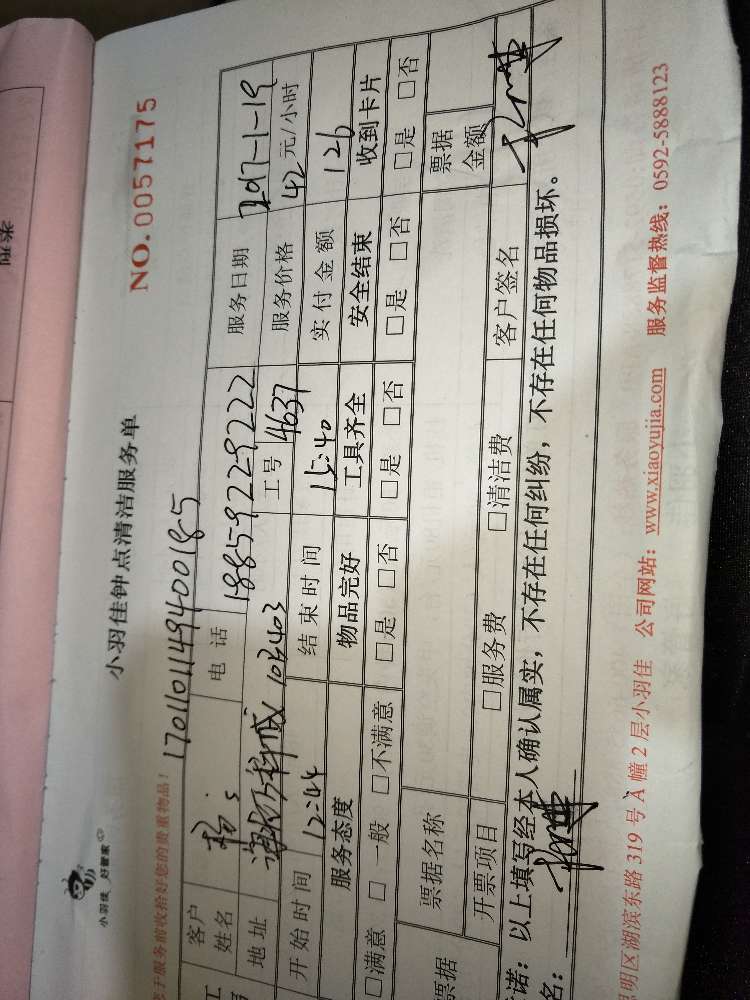 小羽佳 好管家
小羽佳钟点清洁服务单
NO.0057175
于服务前收拾好您的贵重物品!
1701101149400185
客户姓名 电话 18859229222 服务日期 2017-1-19
地址 103403 工号 4637 服务价格 42元/小时
开始时间 12:44 结束时间 15:40 实付金额 126
服务态度 物品完好 工具齐全 安全结束 收到卡片
□满意 □一般 □不满意 □是 □否 □是 □否 □是 □否 □是 □否
票据 票据名称 票据金额
开票项目 □服务费 □清洁费 客户签名
诺:以上填写经本人确认属实,不存在任何纠纷,不存在任何物品损坏。
名:
明区湖滨东路 319 号 A 幢 2 层小羽佳 公司网站:www.xiaoyujia.com 服务监督热线:0592-5888123